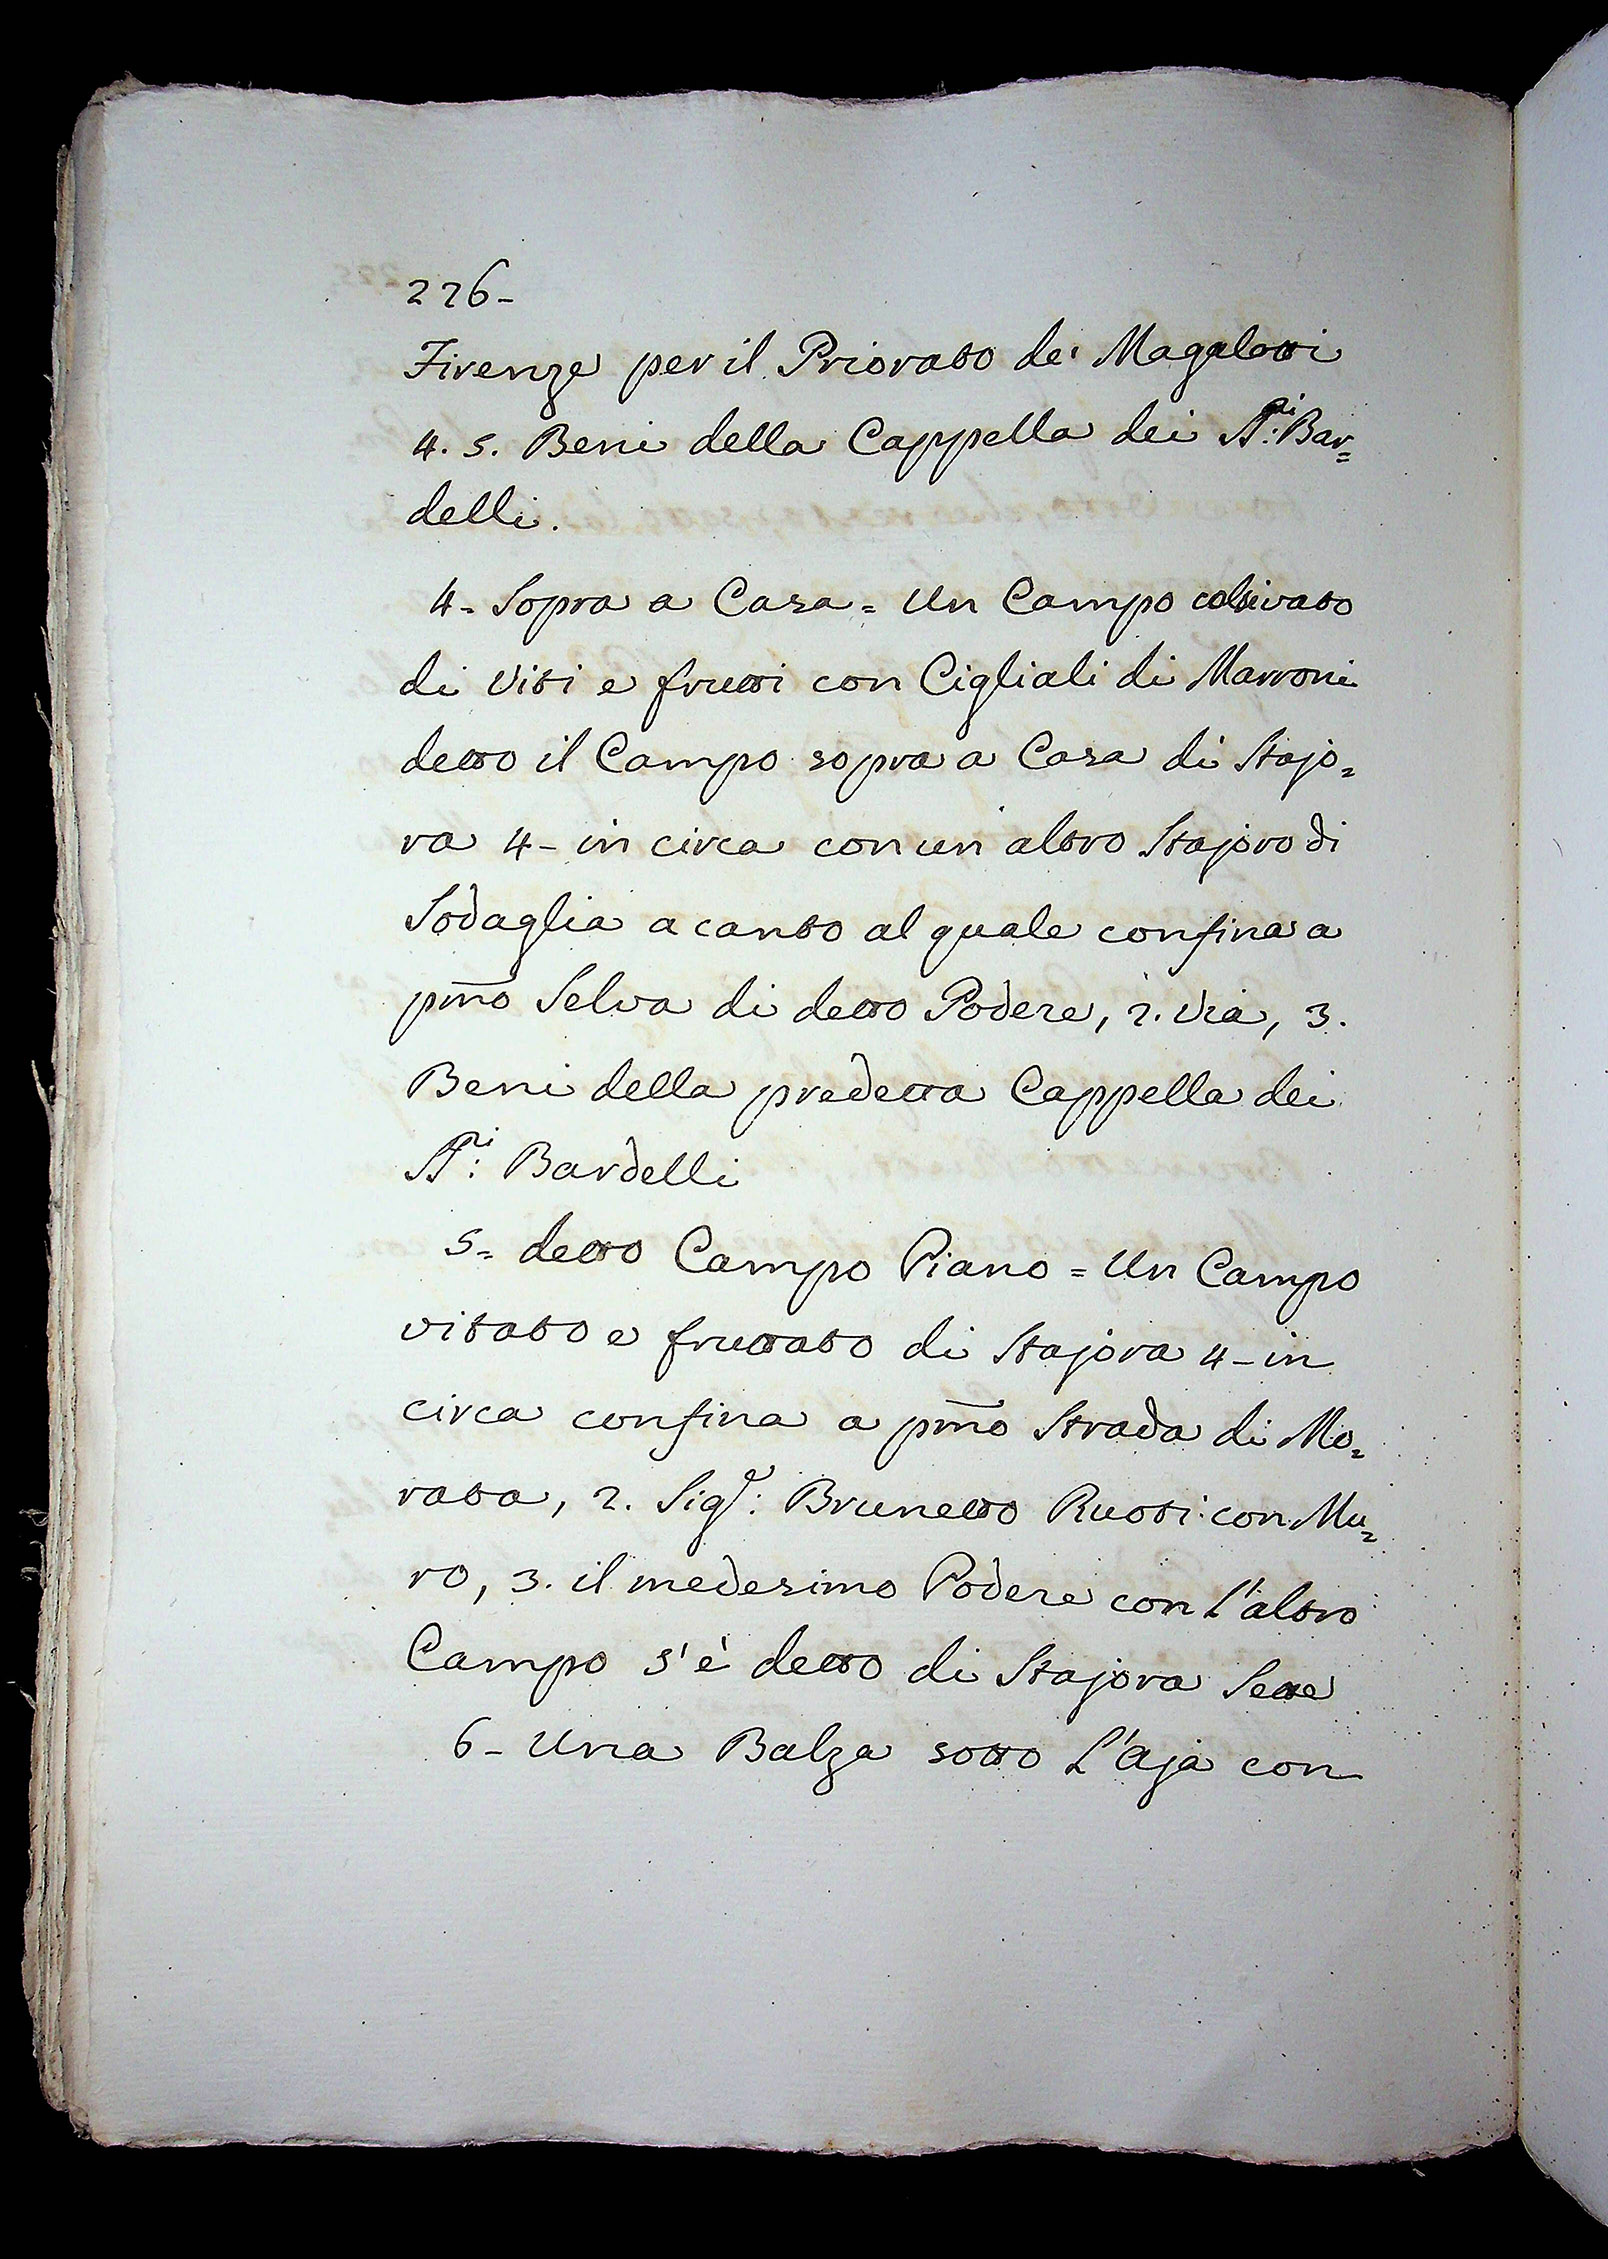 226-
Firenze per il Priorato de' Magalotti
4. 5. Beni della Cappella dei SS.ri: Bar=
delli.
4- Sopra a Casa = Un Campo coltivato
di Viti e frutti con Cigliali di Marroni
detto il Campo sopra a Casa di Stajo=
ra 4- in circa con un altro Stajoro di
Sodaglia a canto al quale confina a
pmo Selva di detto Podere, 2. Via, 3.
Beni della predetta Cappella dei
SS.ri: Bardelli
5= detto Campo Piano = Un Campo
vitato e fruttato di Stajora 4- in
circa confina a pmo Strada di Mo=
rata, 2. Sig.e: Brunetto Rusti: con Mu=
ro, 3. il medesimo Podere con l'altro
Campo s'è detto di Stajora Sette
6- Una Balza sotto l'Aja con